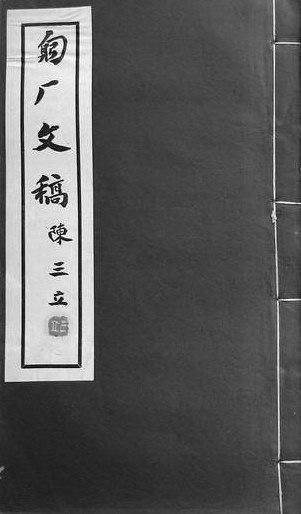 匑厂文稿
陳三立